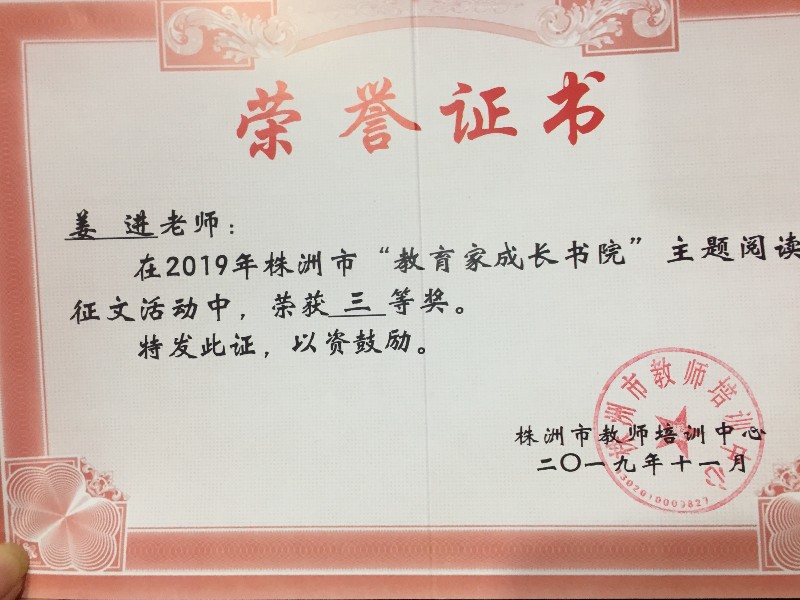 荣誉证书
姜 进老师：
在2019年株洲市“教育家成长书院”主题阅读
征文活动中，荣获 三 等奖。
特发此证，以资鼓励。
株洲市教师培训中心
二〇一九年十一月
株洲市教师培训中心